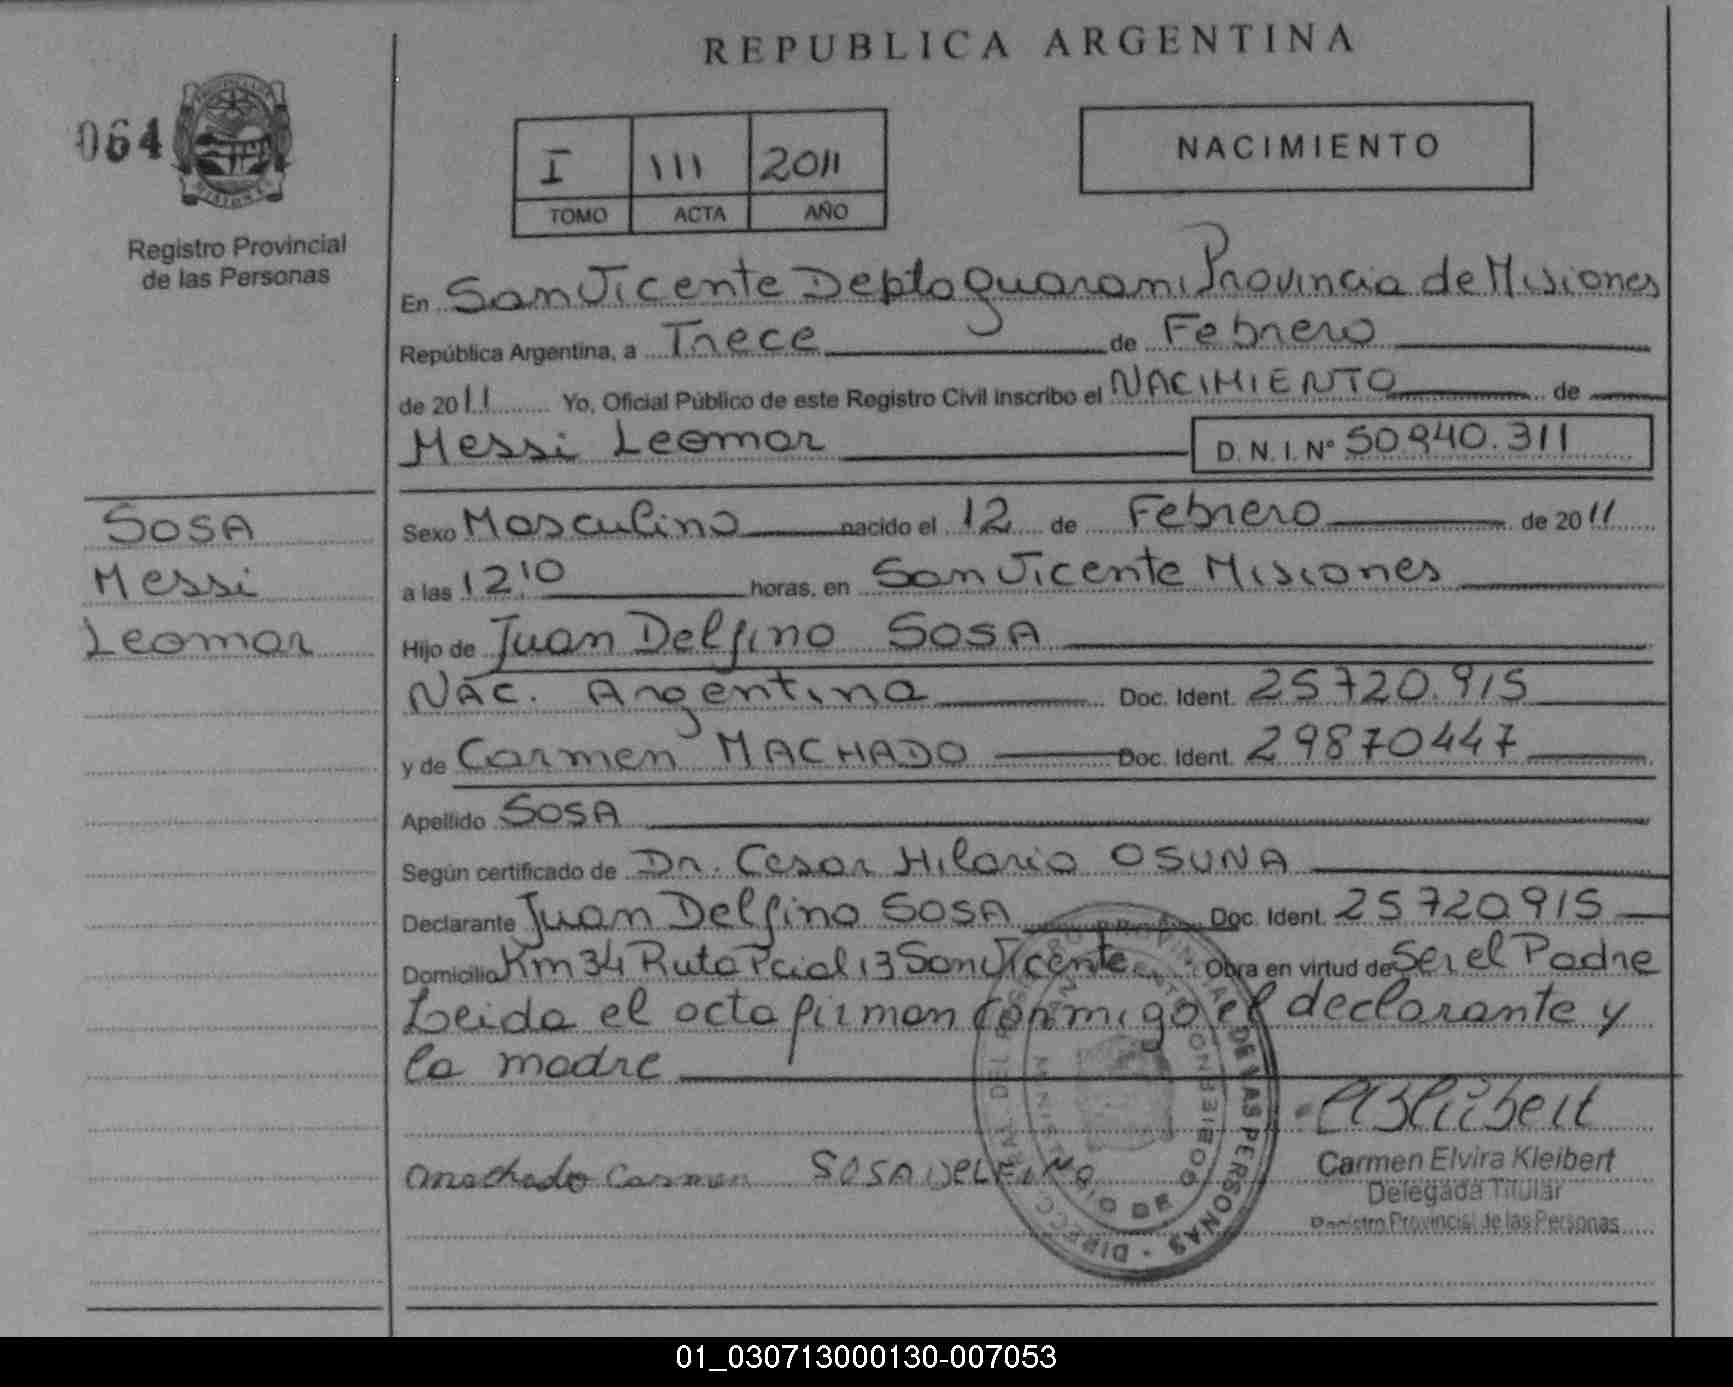 REPUBLICA ARGENTINA
064
I 111 2011
TOMO ACTA AÑO
NACIMIENTO
Registro Provincial
de las Personas
En San Vicente Depto Guarani Provincia de Misiones
República Argentina, a Trece de Febrero
de 2011 Yo, Oficial Público de este Registro Civil inscribo el NACIMIENTO de
Messi Leomar D.N.I. Nº 50940.311
SOSA
Messi
Leomar
Sexo Masculino nacido el 12 de Febrero de 2011
a las 12'10 horas, en San Vicente Misiones
Hijo de Juan Delfino SOSA
NAC. Argentina Doc. Ident. 25720.915
y de Carmen MACHADO Doc. Ident. 29870447
Apellido SOSA
Según certificado de Dr. Cesar Hilario OSUNA
Declarante Juan Delfino SOSA Doc. Ident. 25720915
Domicilio Km 34 Ruta Pcial 13 San Vicente Obra en virtud de Ser el Padre
Leida el acta firman conmigo el declarante y
la madre
Machado Carmen SOSA DELFINO
Carmen Elvira Kleibert
Delegada Titular
Registro Provincial de las Personas
01_030713000130-007053